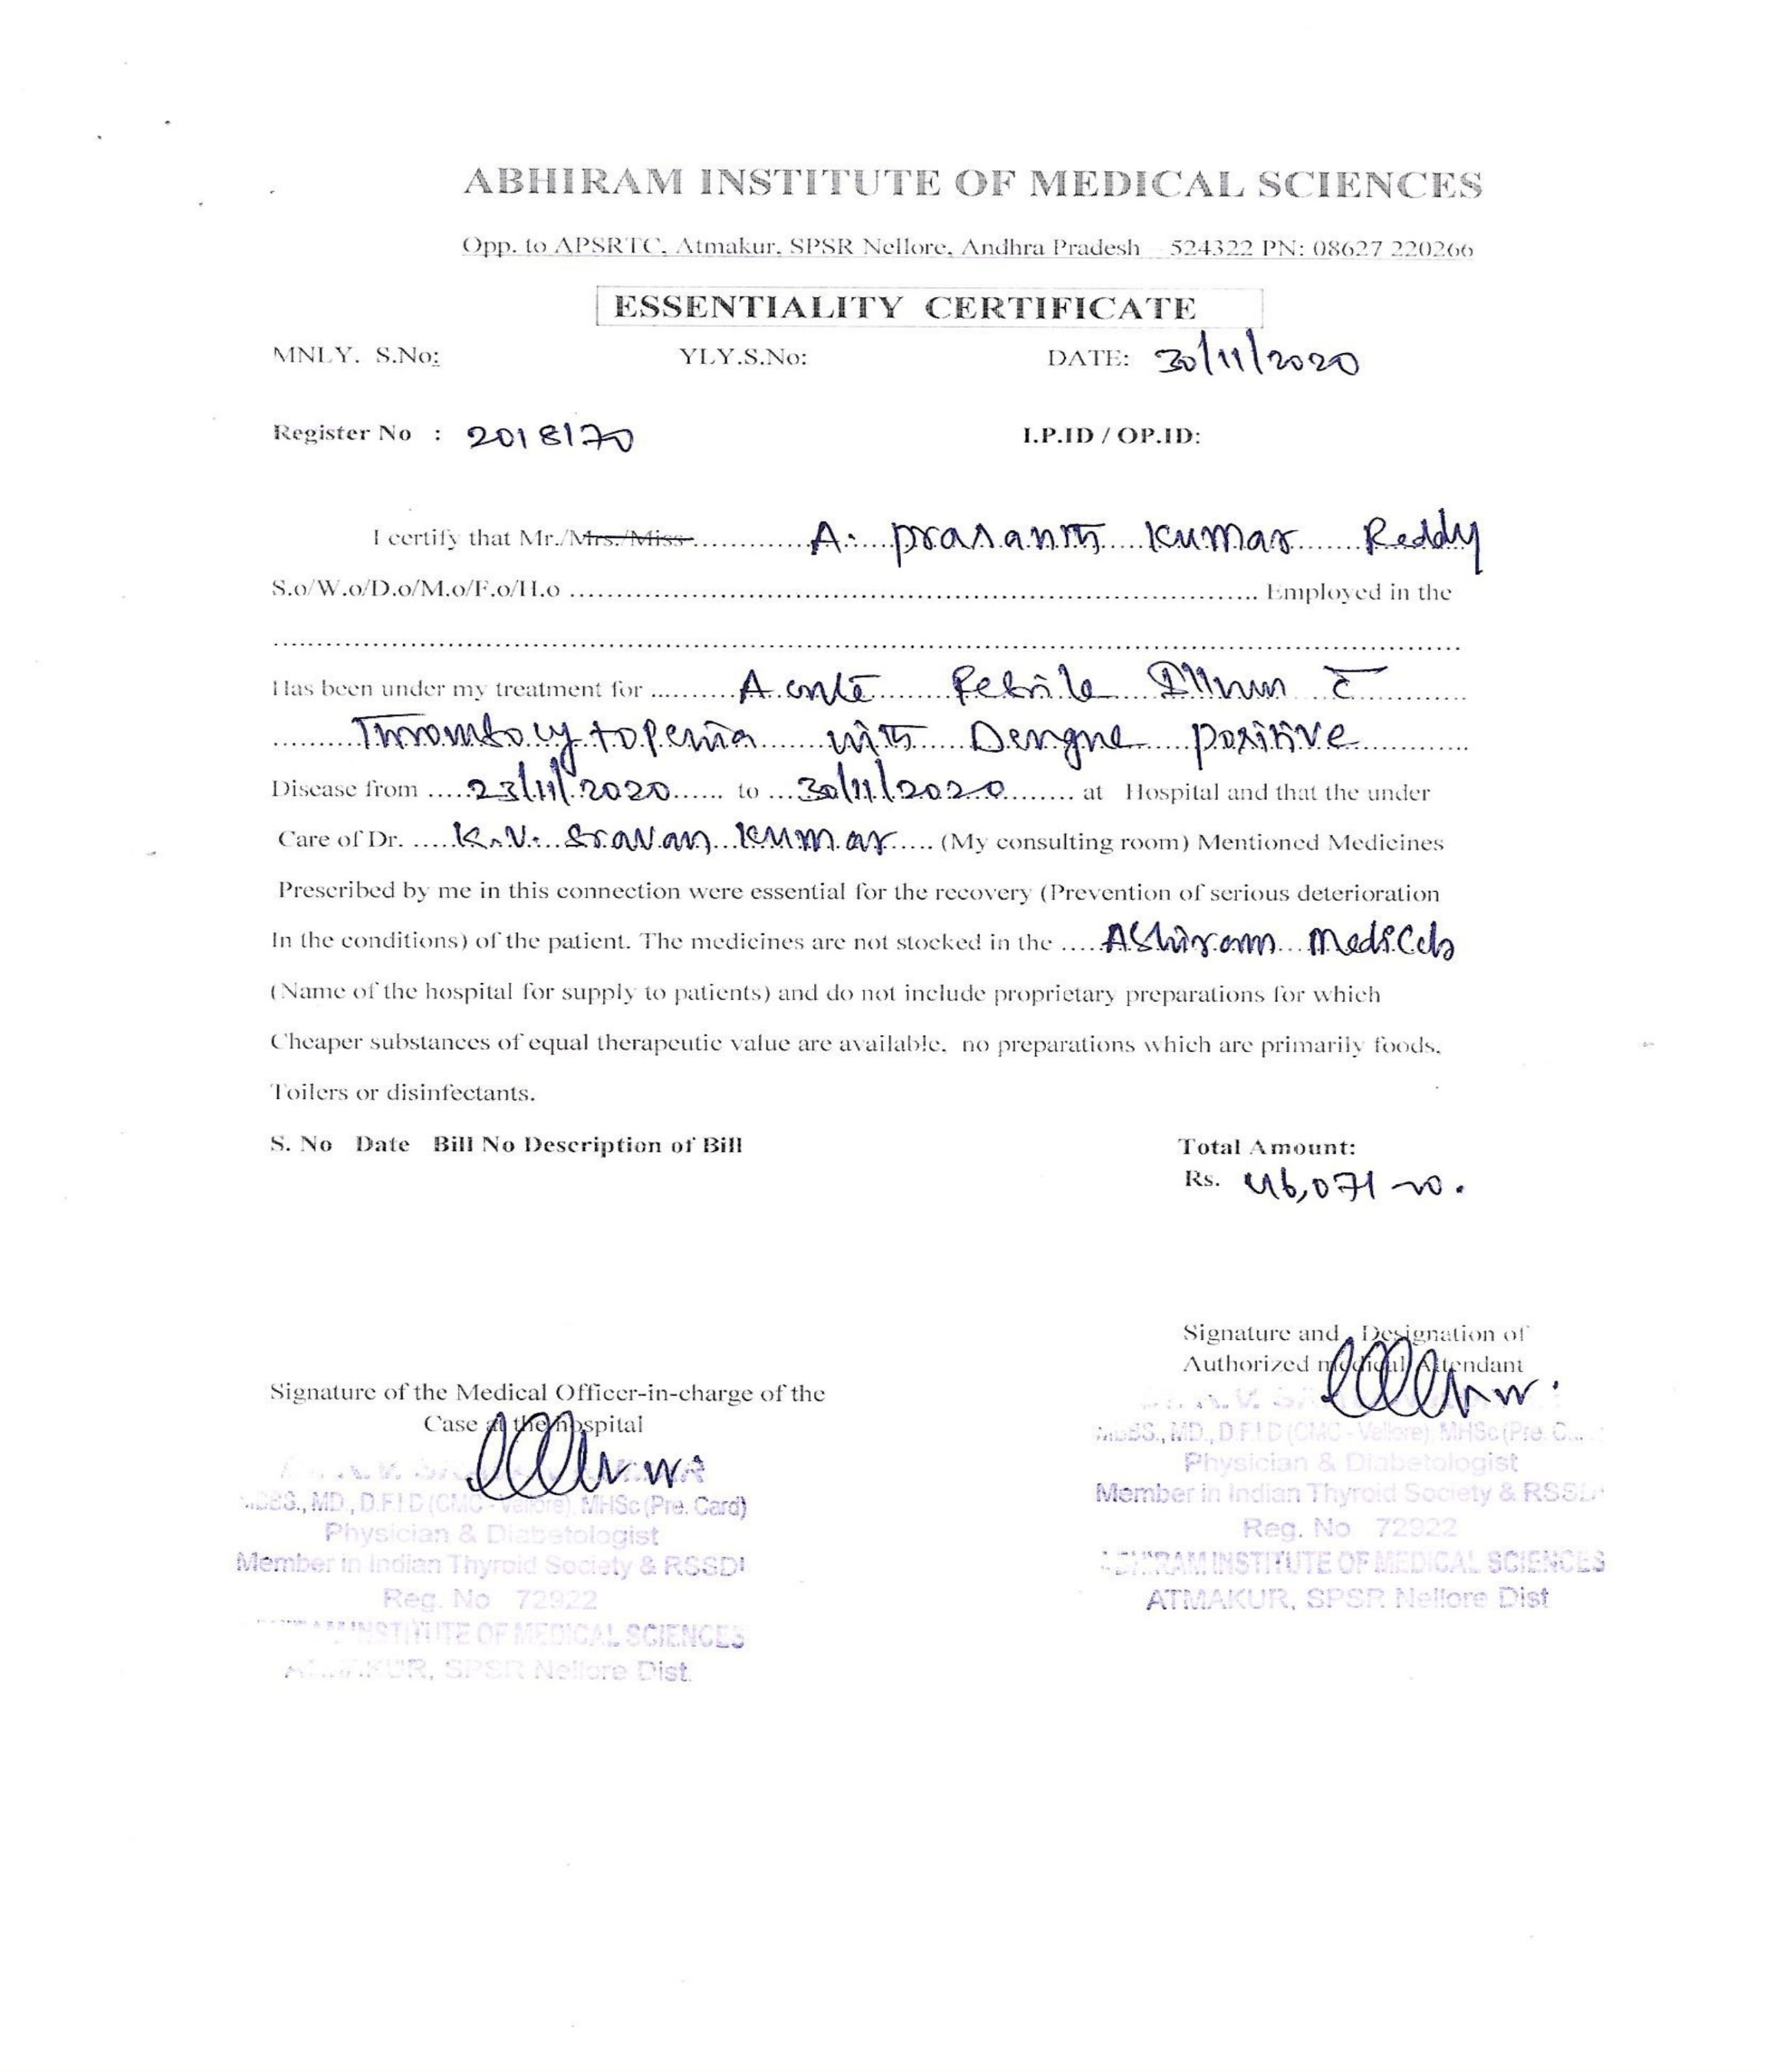 ABHIRAM INSTITUTE OF MEDICAL SCIENCES
Opp. to APSRTC, Atmakur, SPSR Nellore, Andhra Pradesh 524322 PN: 08627 220266
ESSENTIALITY CERTIFICATE
MNLY. S.No: YLY.S.No: DATE: 30/11/2020
Register No : 2018170 I.P.ID / OP.ID:
I certify that Mr./Mrs./Miss A. Prasanth Kumar Reddy
S.o/W.o/D.o/M.o/F.o/H.o Employed in the
Has been under my treatment for Acute Febrile Illness c̄
Thrombocytopenia with Dengue positive
Disease from 23/11/2020 to 30/11/2020 at Hospital and that the under
Care of Dr. K.V. Sravan Kumar (My consulting room) Mentioned Medicines
Prescribed by me in this connection were essential for the recovery (Prevention of serious deterioration
In the conditions) of the patient. The medicines are not stocked in the Abhiram Medicals
(Name of the hospital for supply to patients) and do not include proprietary preparations for which
Cheaper substances of equal therapeutic value are available, no preparations which are primarily foods,
Toilers or disinfectants.
S. No Date Bill No Description of Bill Total Amount:
Rs. 46,071
Signature and Designation of
Authorized medical Attendant
Signature of the Medical Officer-in-charge of the
Case at the hospital
MBBS., MD., D.F.I D (CMC - Vellore), MHSc (Pre. Card)
Physician & Diabetologist
Member in Indian Thyroid Society & RSSDI
Reg. No 72922
INSTITUTE OF MEDICAL SCIENCES
ATMAKUR, SPSR Nellore Dist
MBBS., MD., D.F.I D (CMC - Vellore), MHSc (Pre.
Physician & Diabetologist
Member in Indian Thyroid Society & RSSDI
Reg. No 72922
ABHIRAM INSTITUTE OF MEDICAL SCIENCES
ATMAKUR, SPSR Nellore Dist